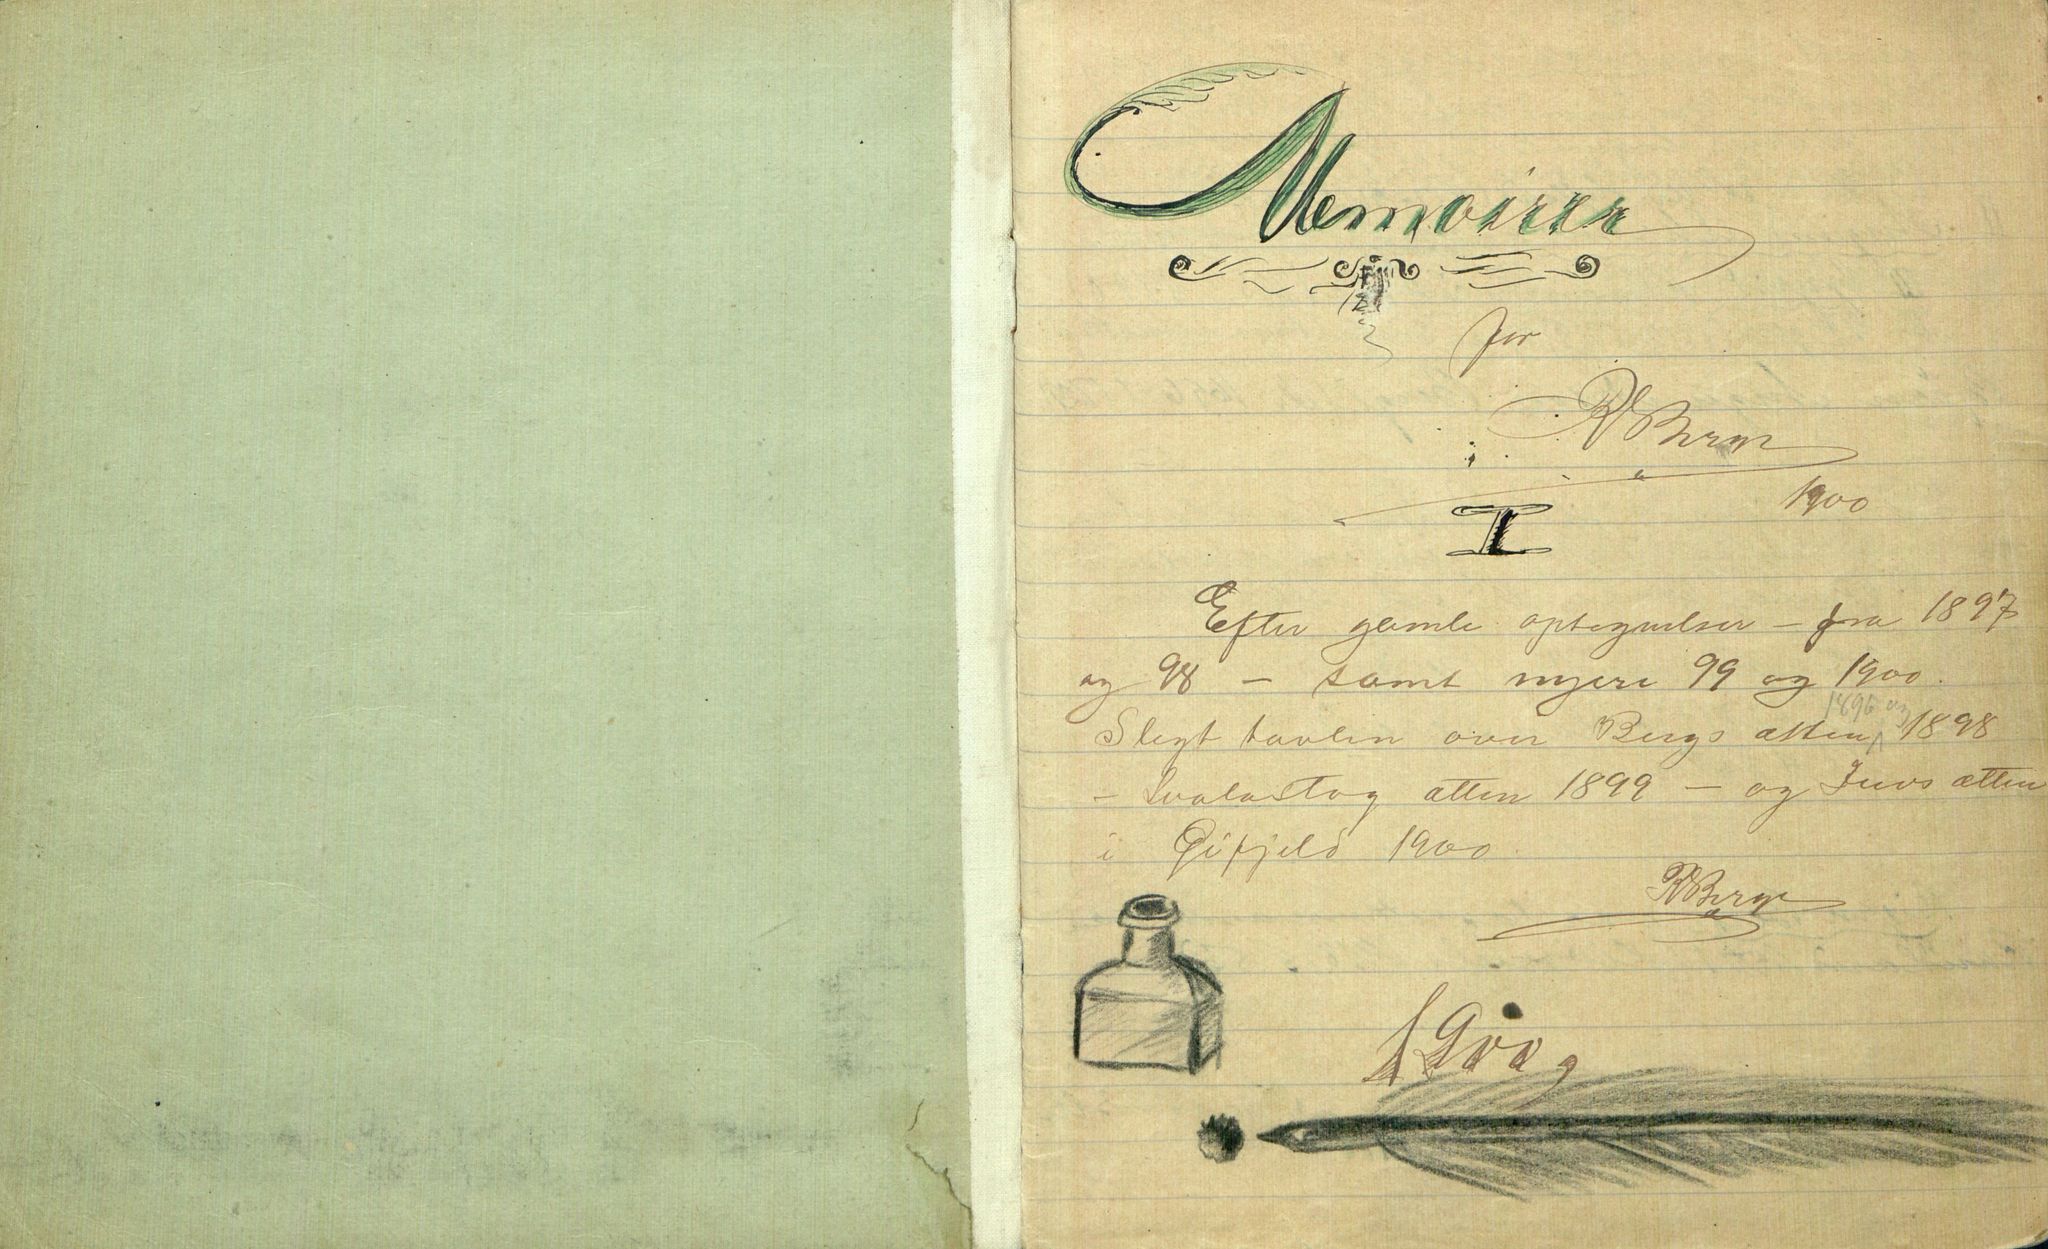 Memoirer
for
RBerge
1900
I
Efter gamle optegnelser – fra 1897
og 98 – samt nyere 99 og 1900.
1896 og
Slegt tavlen over Bergs ætten, 1898
– Svalastog ætten 1899 – og Juvs ætten
i 1900.
RBerge